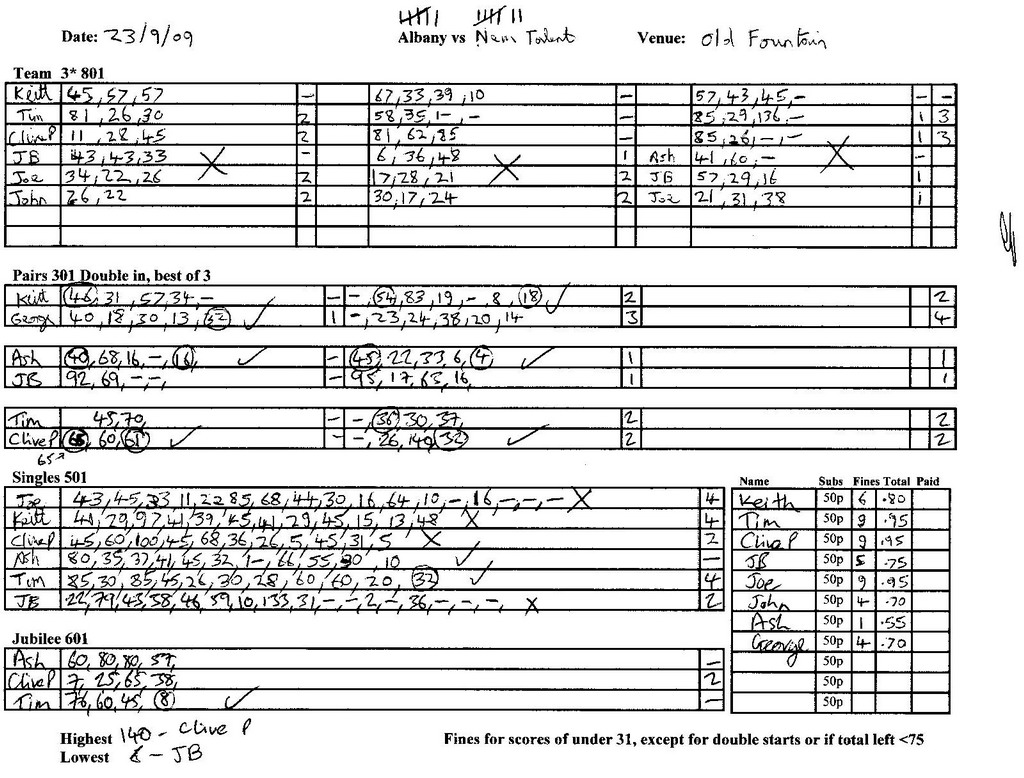 Date: 23/9/09 Albany vs New Talent Venue: Old Fountain
Team 3* 801
Keith 45, 57, 57 - 67, 33, 39, 10 - 57, 43, 45, - - -
Tim 81, 26, 30 2 58, 35, 1-, - - 85, 29, 136, - 1 3
Clive P 11, 28, 45 2 81, 62, 85 - 85, 26, -, - 1 3
JB 43, 43, 33 X - 6, 36, 48 X 1 Ash 41, 60, - X -
Joe 34, 22, 26 2 17, 28, 21 2 JB 57, 29, 16 1
John 26, 22 2 30, 17, 24 2 Joe 21, 31, 38 1
Pairs 301 Double in, best of 3
Keith 46, 31, 57, 34, - - -, 54, 83, 19, -, 8, 18 ✓ 2 2
George 40, 18, 30, 13, 32 ✓ 1 -, 23, 24, 38, 20, 14 3 4
Ash 40, 68, 16, -, 16, ✓ - 45, 22, 33, 6, 4 ✓ 1 1
JB 92, 69, -, -, - 95, 17, 63, 16, 1 1
Tim 45, 70, - -, 36, 30, 37, 2 2
Clive P 65, 60, 61 ✓ - -, 26, 140, 32 ✓ 2 2
65
Singles 501
Joe 43, 45, 33, 11, 22, 85, 68, 44, 30, 16, 64, 10, -, 16, -, -, - X 4
Keith 41, 29, 97, 41, 39, 45, 41, 29, 45, 15, 13, 48 X 4
Clive P 45, 60, 100, 45, 68, 36, 26, 5, 45, 31, 5 X 2
Ash 80, 35, 37, 41, 45, 32, 1-, 66, 55, 30, 10 ✓ -
Tim 85, 30, 85, 45, 26, 30, 28, 60, 60, 20, 32 ✓ 4
JB 22, 79, 43, 58, 46, 59, 10, 133, 31, -, -, 2, -, 36, -, -, -, X 2
Name Subs Fines Total Paid
Keith 50p 6 .80
Tim 50p 9 .95
Clive P 50p 9 .95
JB 50p 5 .75
Joe 50p 9 .95
John 50p 4 .70
Ash 50p 1 .55
George 50p 4 .70
50p
50p
50p
Jubilee 601
Ash 60, 80, 80, 57, -
Clive P 7, 25, 65, 38, 2
Tim 76, 60, 45, 8 ✓ -
Highest 140 - Clive P
Lowest 6 - JB
Fines for scores of under 31, except for double starts or if total left <75